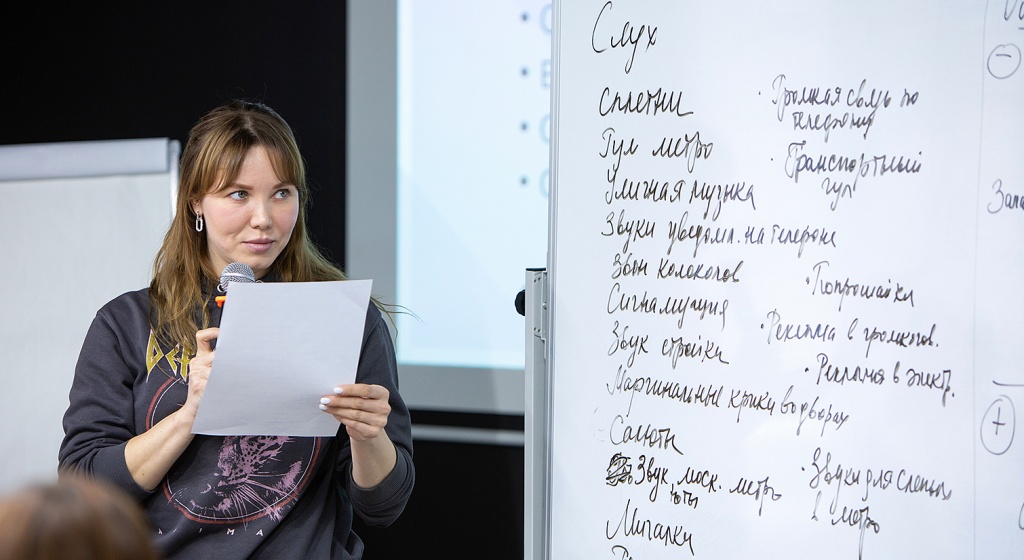 Слух
сплетни
Гул метро
Уличная музыка
Звуки уведомл. на телефоне
Звон колоколов
Сигнализация
Звук стройки
Маргинальные крики во дворах
Салюты
Звук моск. метро
Мигалки
· Громкая связь по
телефония
· Транспортный
гул
· Попрошайки
· Реклама в громкогов.
· Реклама в электр.
· Звуки для слепых
в метро
Запа
−
+